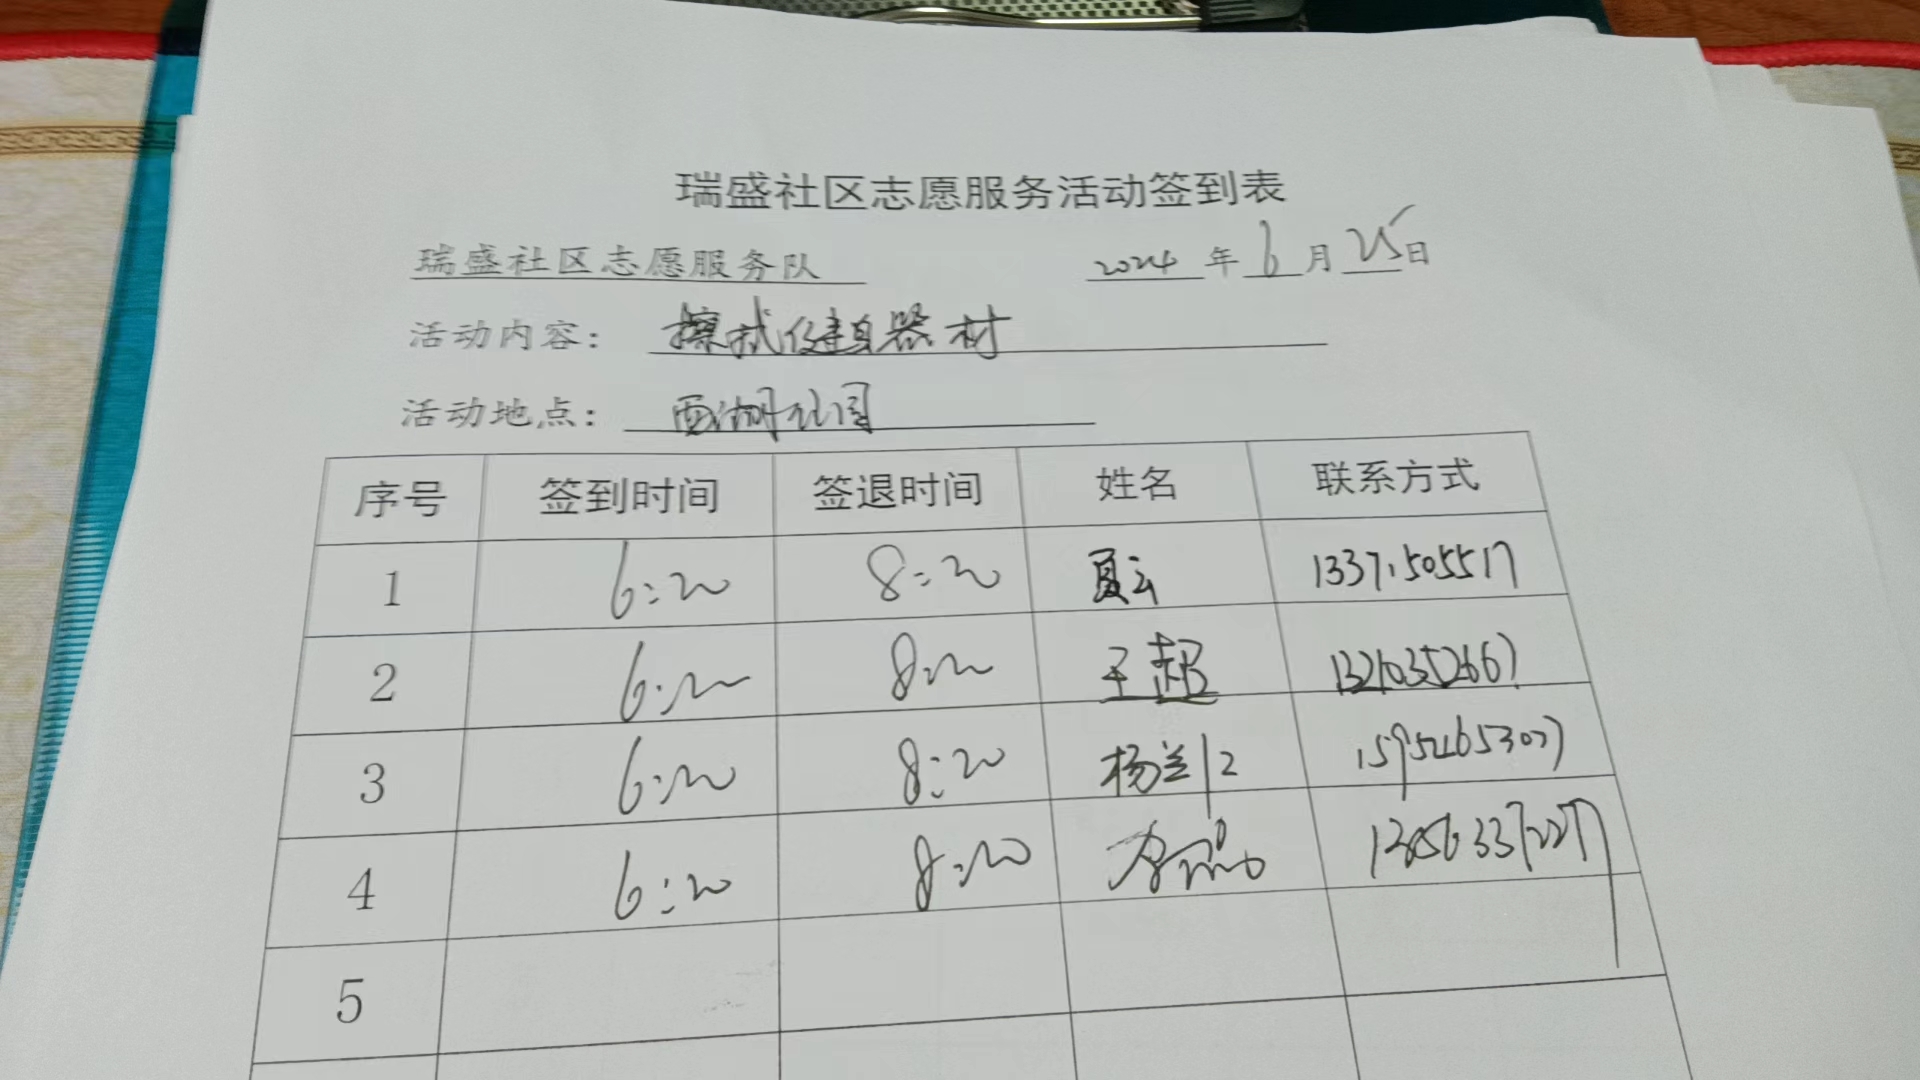 瑞盛社区志愿服务活动签到表
瑞盛社区志愿服务队 2024 年 6 月 25 日
活动内容: 擦拭健身器材
活动地点: 西湖公园
序号 签到时间 签退时间 姓名 联系方式
1 6:20 8:20 夏云 13371505517
2 6:20 8:20 王超 13210352667
3 6:20 8:20 杨兰
4 6:20 8:20
5